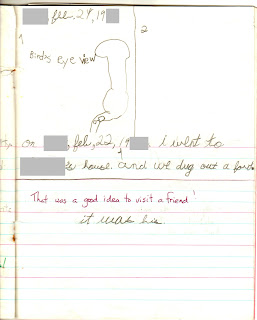 , feb. 24, 19
1
2
Birdis eye view
on , feb, 22, 19 , i went to
's house. and we dug out a fort.
That was a good idea to visit a friend!
it was his